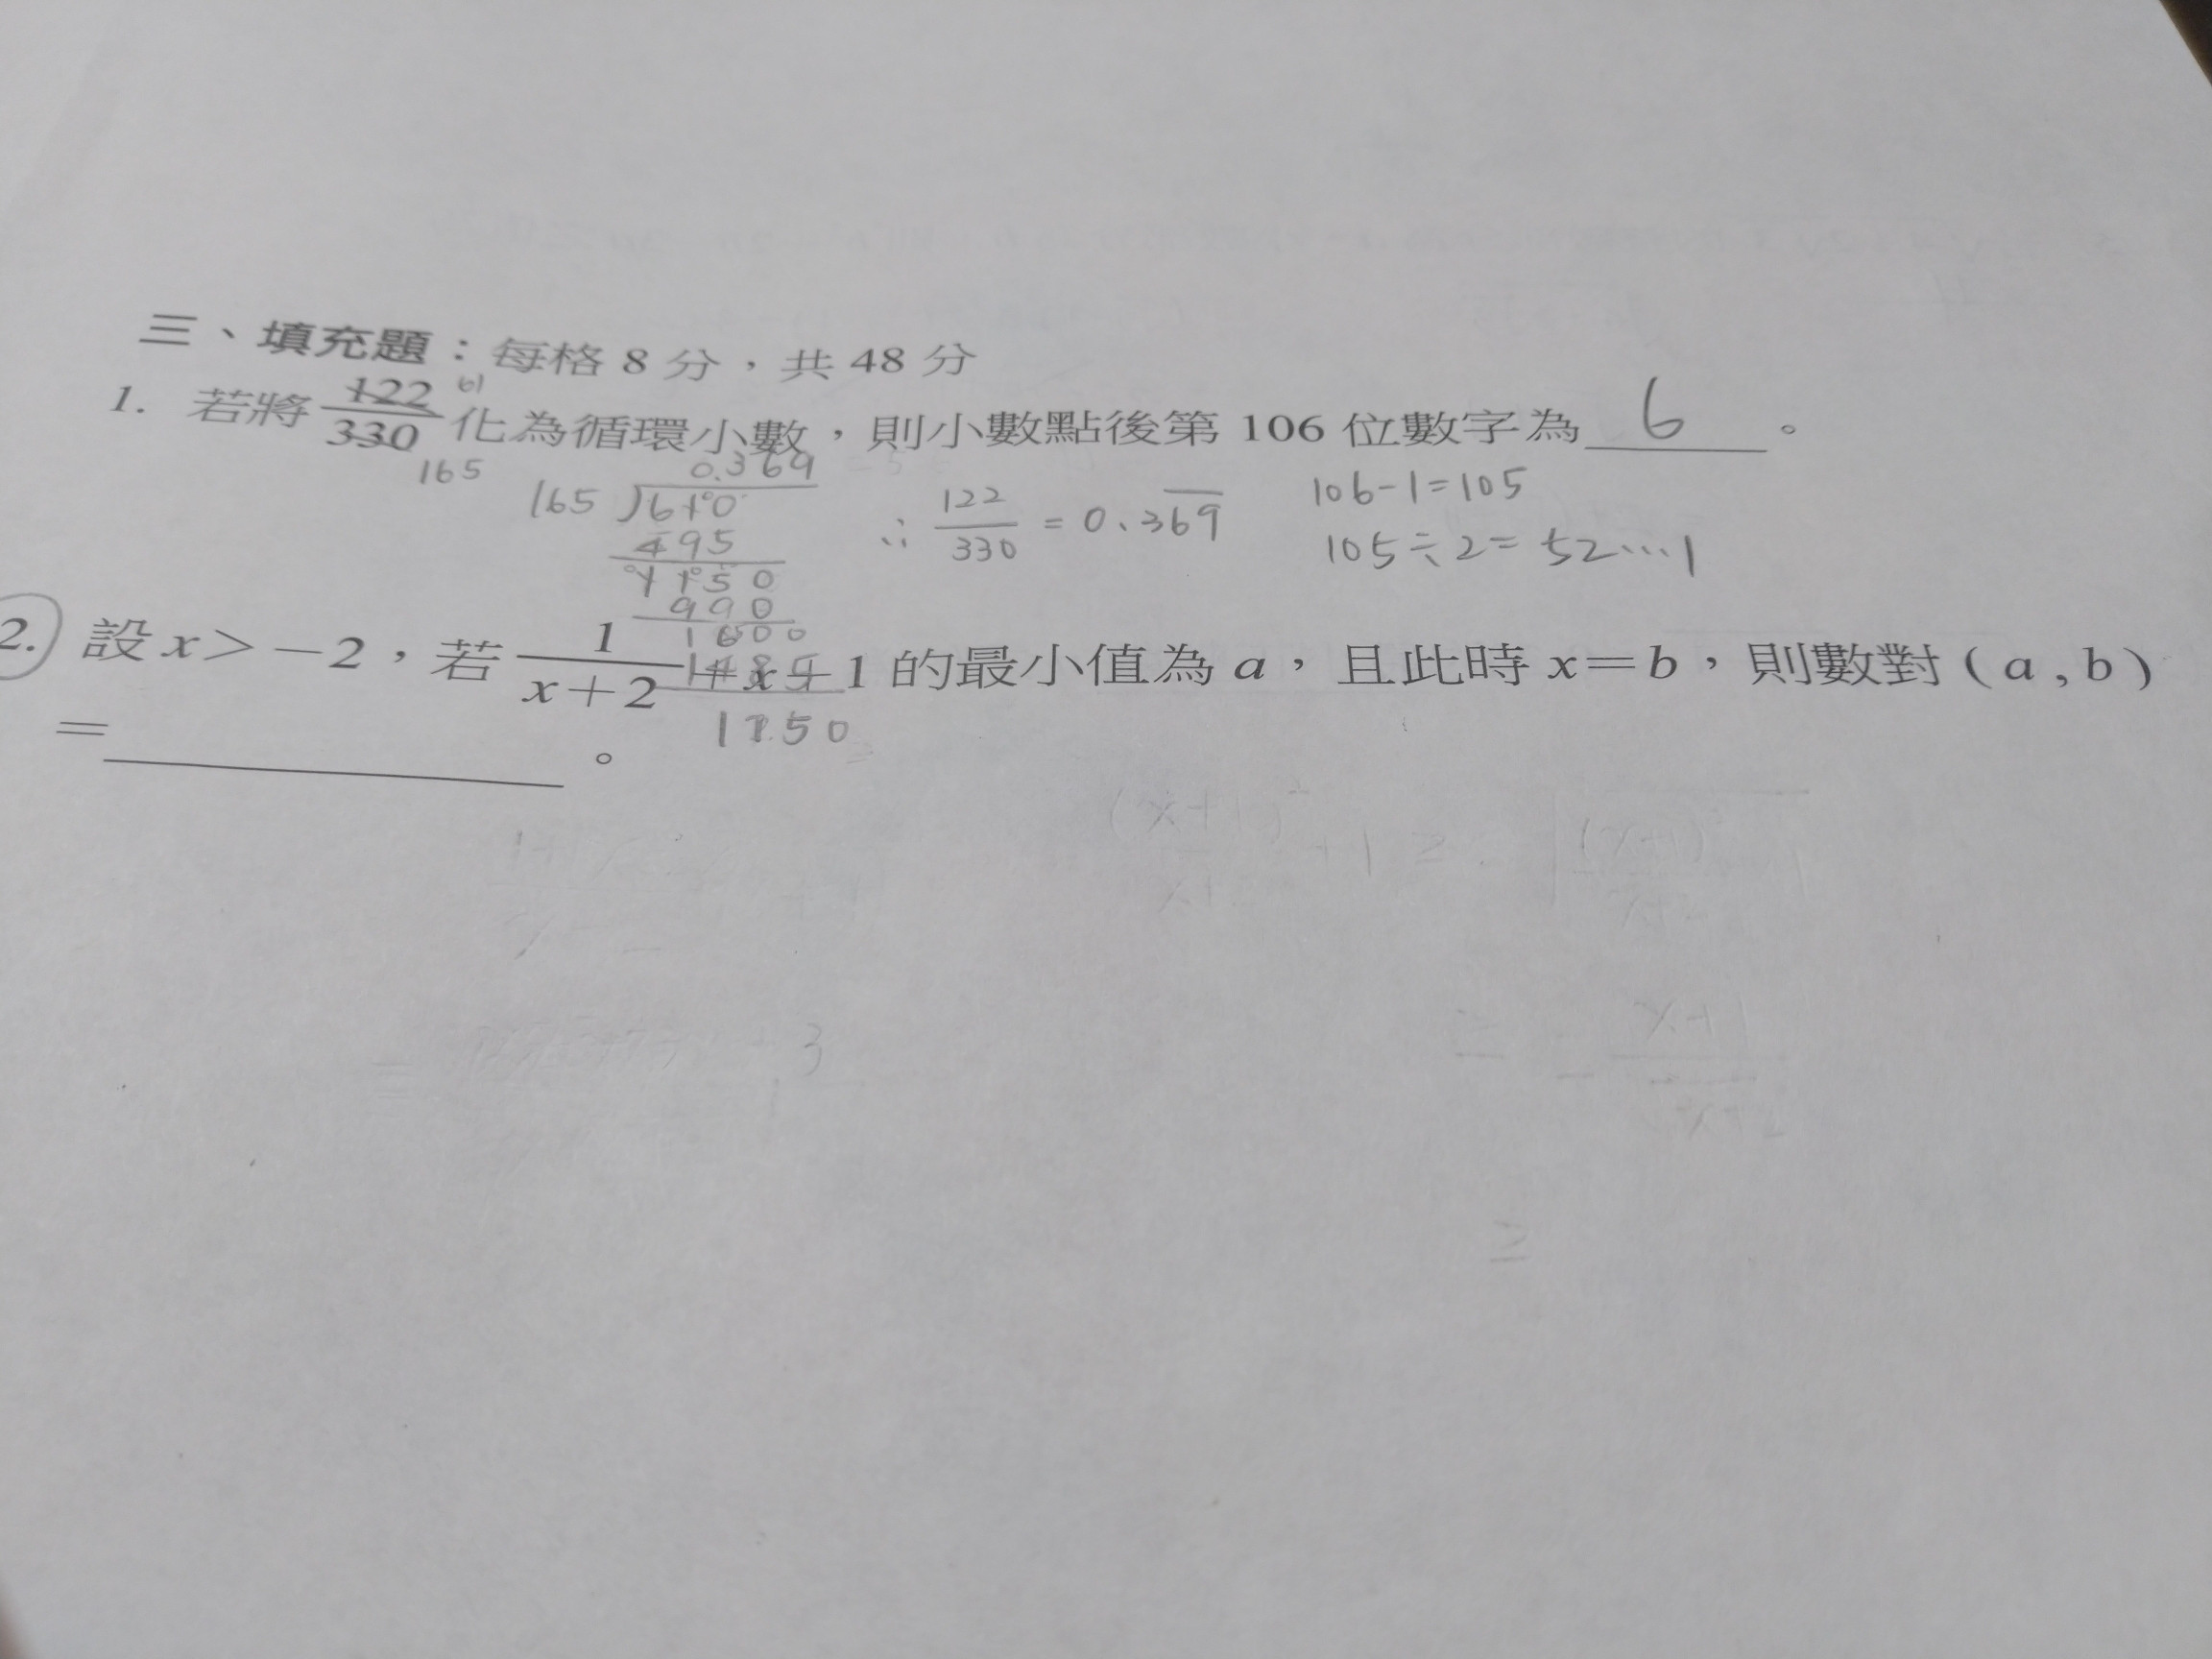 三、填充題：每格 8 分，共 48 分
1. 若將 122/330 化為循環小數，則小數點後第 106 位數字為 6 。
61
165
0.369
165 ) 610
495
1150
990
1600
1485
1150
∴ 122/330 = 0.3\overline{69}
106-1=105
105÷2=52…1
2. 設 x＞－2，若 1/(x＋2) ＋x＋1 的最小值為 a，且此時 x＝b，則數對 ( a , b )
＝ 。